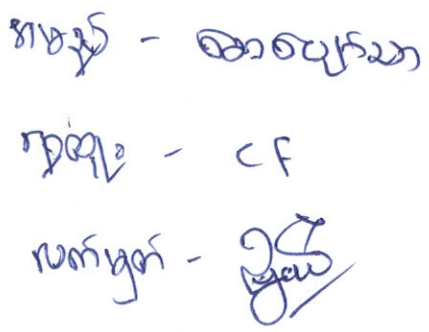 အမည် - စောပျော်သာ
ရာထူး - CF
လက်မှတ် -